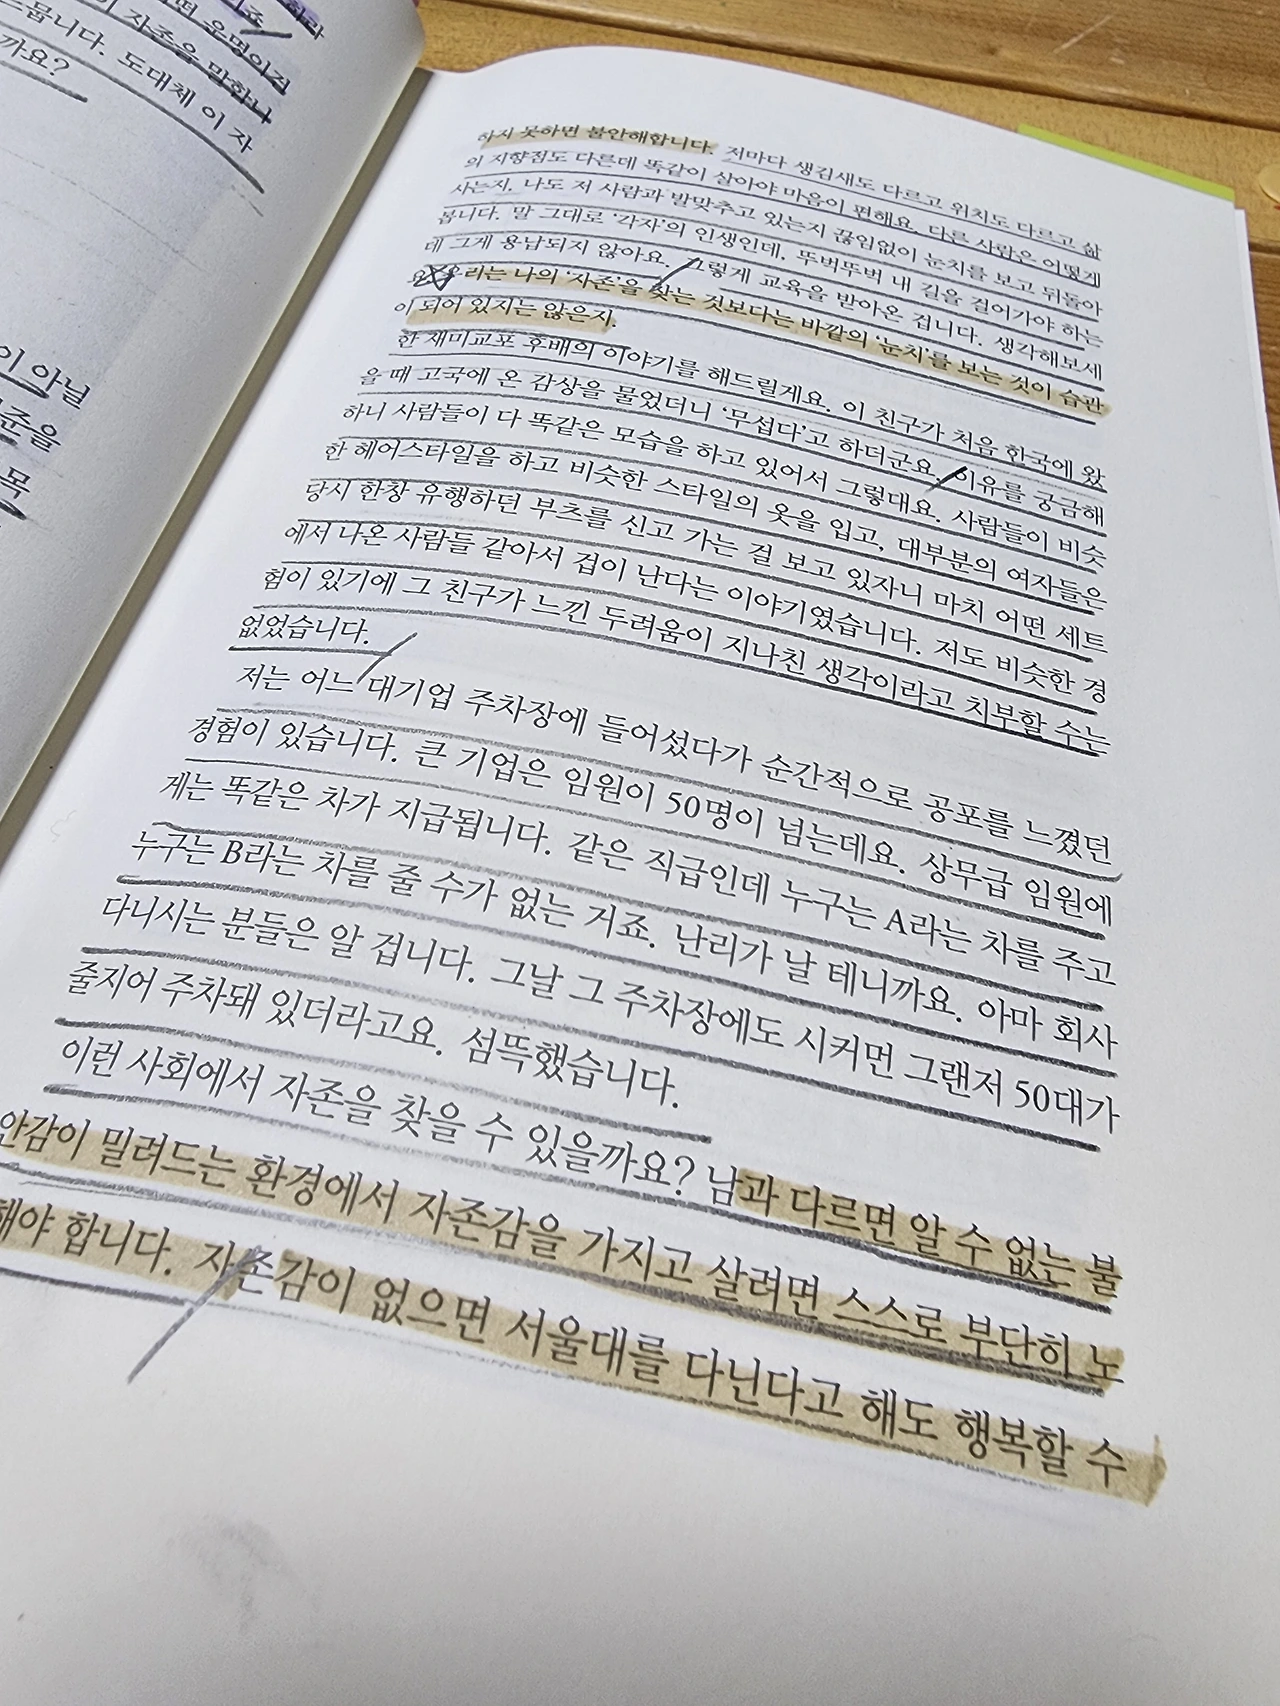 떠 운명이건
의 자존을 말합니
느뭅니다. 도대체 이 자
까요?
이 아닐
준을
목
하지 못하면 불안해합니다. 저마다 생김새도 다르고 위치도 다르고 삶
의 지향점도 다른데 똑같이 살아야 마음이 편해요. 다른 사람은 어떻게
사는지, 나도 저 사람과 발맞추고 있는지 끊임없이 눈치를 보고 뒤돌아
봅니다. 말 그대로 '각자'의 인생인데, 뚜벅뚜벅 내 길을 걸어가야 하는
데 그게 용납되지 않아요. 그렇게 교육을 받아온 겁니다. 생각해보세
요. 우리는 나의 '자존'을 찾는 것보다는 바깥의 '눈치'를 보는 것이 습관
이 되어 있지는 않은지.
한 재미교포 후배의 이야기를 해드릴게요. 이 친구가 처음 한국에 왔
을 때 고국에 온 감상을 물었더니 '무섭다'고 하더군요. 이유를 궁금해
하니 사람들이 다 똑같은 모습을 하고 있어서 그렇대요. 사람들이 비슷
한 헤어스타일을 하고 비슷한 스타일의 옷을 입고, 대부분의 여자들은
당시 한창 유행하던 부츠를 신고 가는 걸 보고 있자니 마치 어떤 세트
에서 나온 사람들 같아서 겁이 난다는 이야기였습니다. 저도 비슷한 경
험이 있기에 그 친구가 느낀 두려움이 지나친 생각이라고 치부할 수는
없었습니다.
저는 어느 대기업 주차장에 들어섰다가 순간적으로 공포를 느꼈던
경험이 있습니다. 큰 기업은 임원이 50명이 넘는데요. 상무급 임원에
게는 똑같은 차가 지급됩니다. 같은 직급인데 누구는 A라는 차를 주고
누구는 B라는 차를 줄 수가 없는 거죠. 난리가 날 테니까요. 아마 회사
다니시는 분들은 알 겁니다. 그날 그 주차장에도 시커먼 그랜저 50대가
줄지어 주차돼 있더라고요. 섬뜩했습니다.
이런 사회에서 자존을 찾을 수 있을까요? 남과 다르면 알 수 없는 불
안감이 밀려드는 환경에서 자존감을 가지고 살려면 스스로 부단히 노
해야 합니다. 자존감이 없으면 서울대를 다닌다고 해도 행복할 수